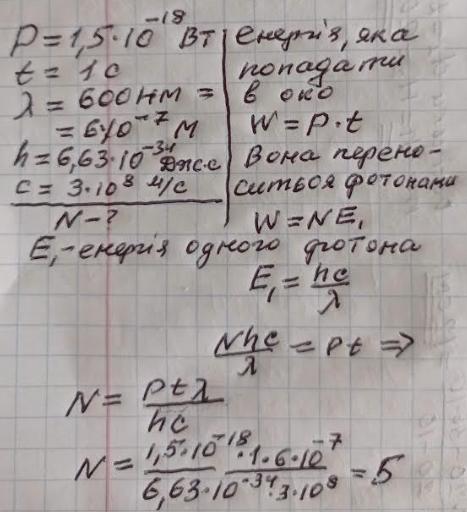 P = 1,5·10⁻¹⁸ Вт
t = 1 с
λ = 600 нм =
= 6·10⁻⁷ м
h = 6,63·10⁻³⁴ Дж·с
c = 3·10⁸ м/с
N - ?
енергія, яка
попадати
в око
W = P·t
Вона перено-
ситься фотонами
W = NE₁
E₁ - енергія одного фотона
E₁ = hc/λ
Nhc/λ = Pt ⇒
N = Ptλ/hc
N = 1,5·10⁻¹⁸·1·6·10⁻⁷/6,63·10⁻³⁴·3·10⁸ = 5